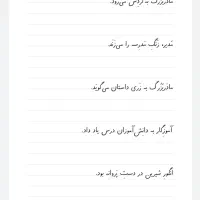 مادربزرگ به اردس می‌رود.
مدیر، زنگ مدرسه را می‌زند.
مادربزرگ به زری داستان می‌گوید.
آموزگار به دانش‌آموزان درس یاد داد.
انگور شیرین در دست پروانه بود.